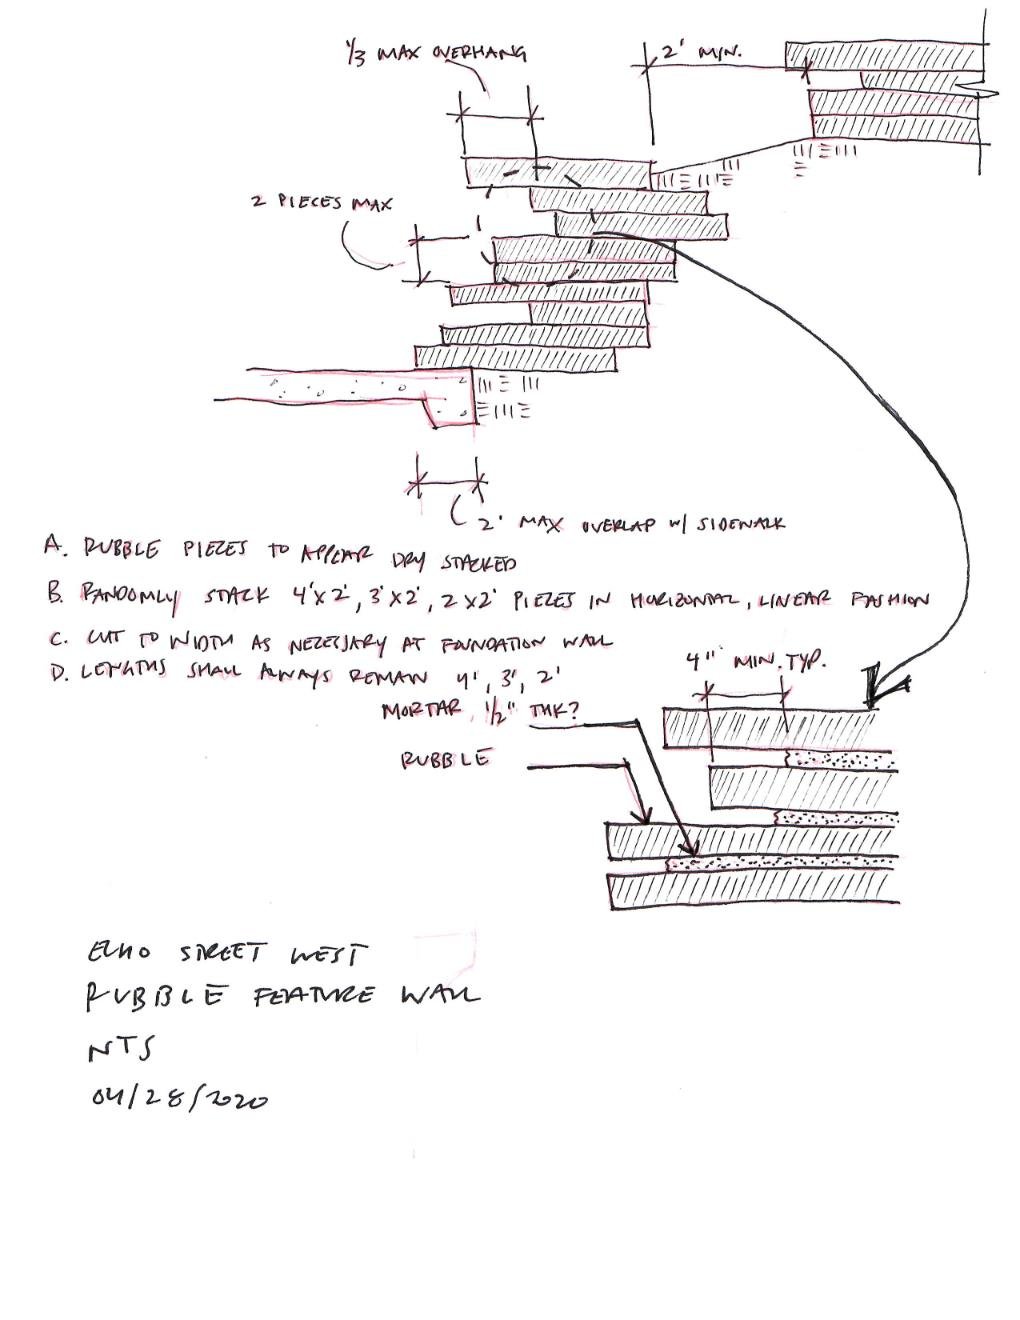 1/3 MAX OVERHANG
2' MIN.
2 PIECES MAX
2' MAX OVERLAP W/ SIDEWALK
A. RUBBLE PIECES TO APPEAR DRY STACKED
B. RANDOMLY STACK 4'X2', 3'X2', 2'X2' PIECES IN HORIZONTAL, LINEAR FASHION
C. CUT TO WIDTH AS NECESSARY AT FOUNDATION WALL
D. LENGTHS SHALL ALWAYS REMAIN 4', 3', 2'
4" MIN. TYP.
MORTAR, 1/2" THK?
RUBBLE
ECHO STREET WEST
RUBBLE FEATURE WALL
NTS
04/28/2020